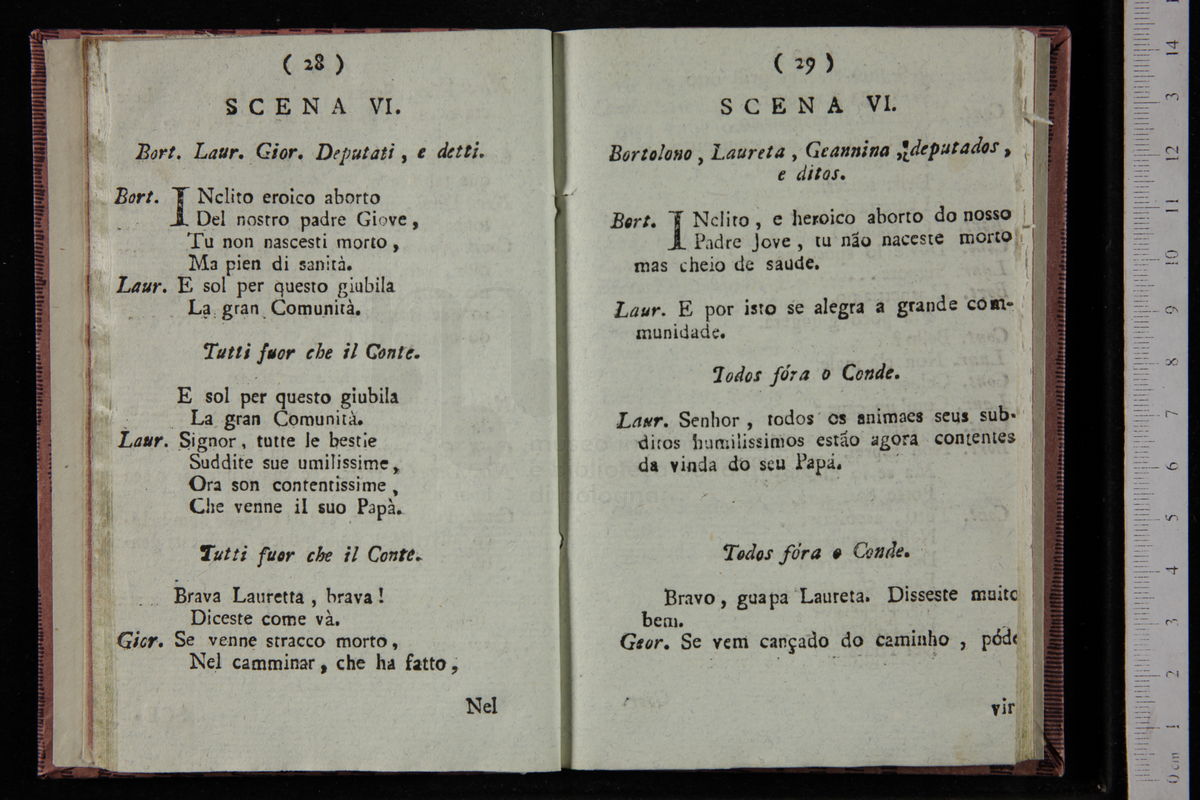 ( 28 )
SCENA VI.
Bort. Laur. Gior. Deputati, e detti.
Bort. INclito eroico aborto
Del nostro padre Giove,
Tu non nascesti morto,
Ma pien di sanità.
Laur. E sol per questo giubila
La gran Comunità.
Tutti fuor che il Conte.
E sol per questo giubila
La gran Comunità.
Laur. Signor, tutte le bestie
Suddite sue umilissime,
Ora son contentissime,
Che venne il suo Papà.
Tutti fuor che il Conte.
Brava Lauretta, brava!
Diceste come và.
Gior. Se venne stracco morto,
Nel camminar, che ha fatto,
Nel
( 29 )
SCENA VI.
Bortolono, Laureta, Geannina, deputados,
e ditos.
Bort. INclito, e heroico aborto do nosso
Padre Jove, tu não naceste morto
mas cheio de saude.
Laur. E por isto se alegra a grande com-
munidade.
Todos fóra o Conde.
Laur. Senhor, todos os animaes seus sub-
ditos humilissimos estão agora contentes
da vinda do seu Papá.
Todos fóra o Conde.
Bravo, guapa Laureta. Disseste muito
bem.
Geor. Se vem cançado do caminho, póde
vir
14
3
12
11
10
9
8
7
6
5
4
3
2
1
0 cm